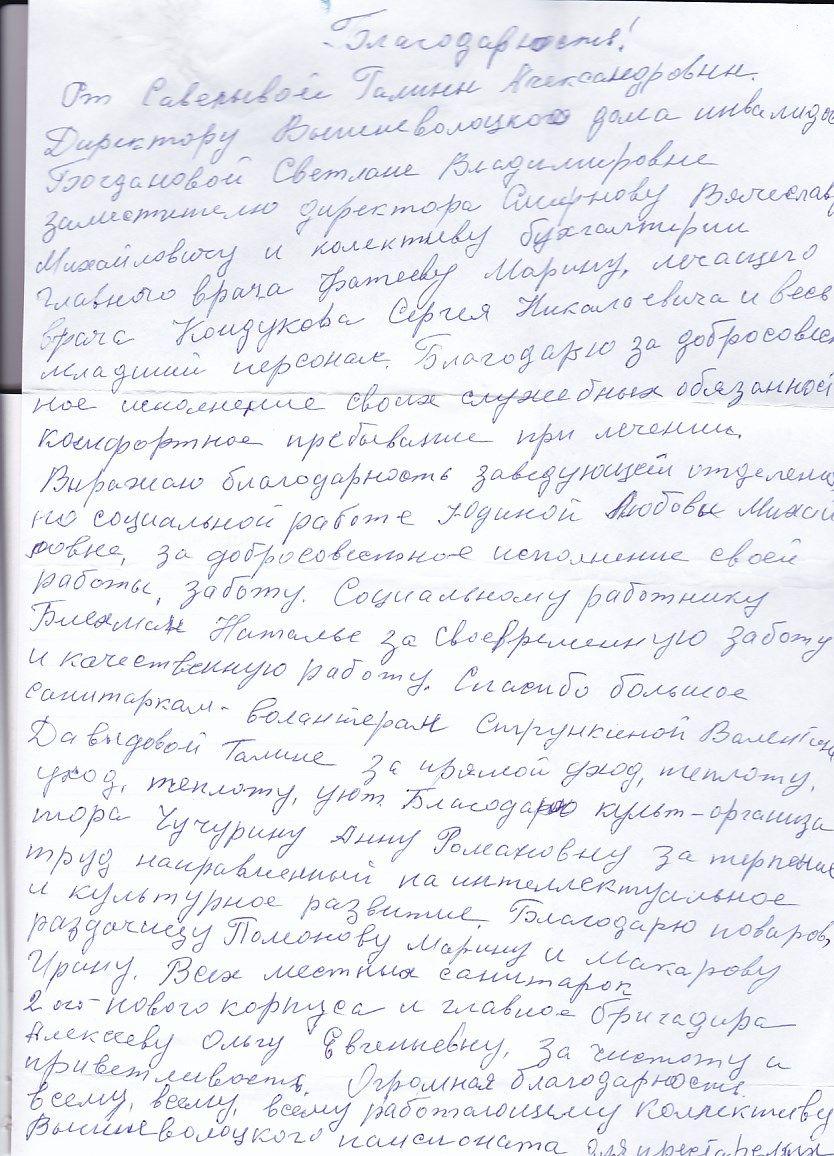 Благодарность!
От Савельевой Галины Александровны.
Директору Вышневолоцкого дома инвалидов
Богдановой Светлане Владимировне
заместителю директора Смирнову Вячеславу
Михайловичу и колективу бухгалтерии
главного врача Марину, лечащего
врача Сергея Николаевича и весь
младший персонал. Благодарю за добросовест
ное исполнение своих служебных обязанностей
комфортное пребывание при лечении.
Выражаю благодарность заведующей отделением
по социальной работе Юдиной Любовь Михай
ловне, за добросовестное исполнение своей
работы, заботу. Социальному работнику
Блехман Наталье за своевременную заботу
и качественную работу. Спасибо большое
санитаркам - волантерам Стрункиной Валентине
Давыдовой Галине за прямой уход, теплоту,
уход, теплоту, уют. Благодарю культ-организа
тора Чучурину Анну Романовну за терпение
труд направленный на интеллектуальное
и культурное развитие. Благодарю поваров,
раздачицу Марину и Макарову
Ирину. Всех местных санитарок
2ого нового корпуса и главное бригадира
Алексеву Ольгу Евгеньевну, за чистоту и
приветливость. Огромная благодарность
всему, всему, всему работающему коллективу
Вышневолоцкого пансионата для престарелых